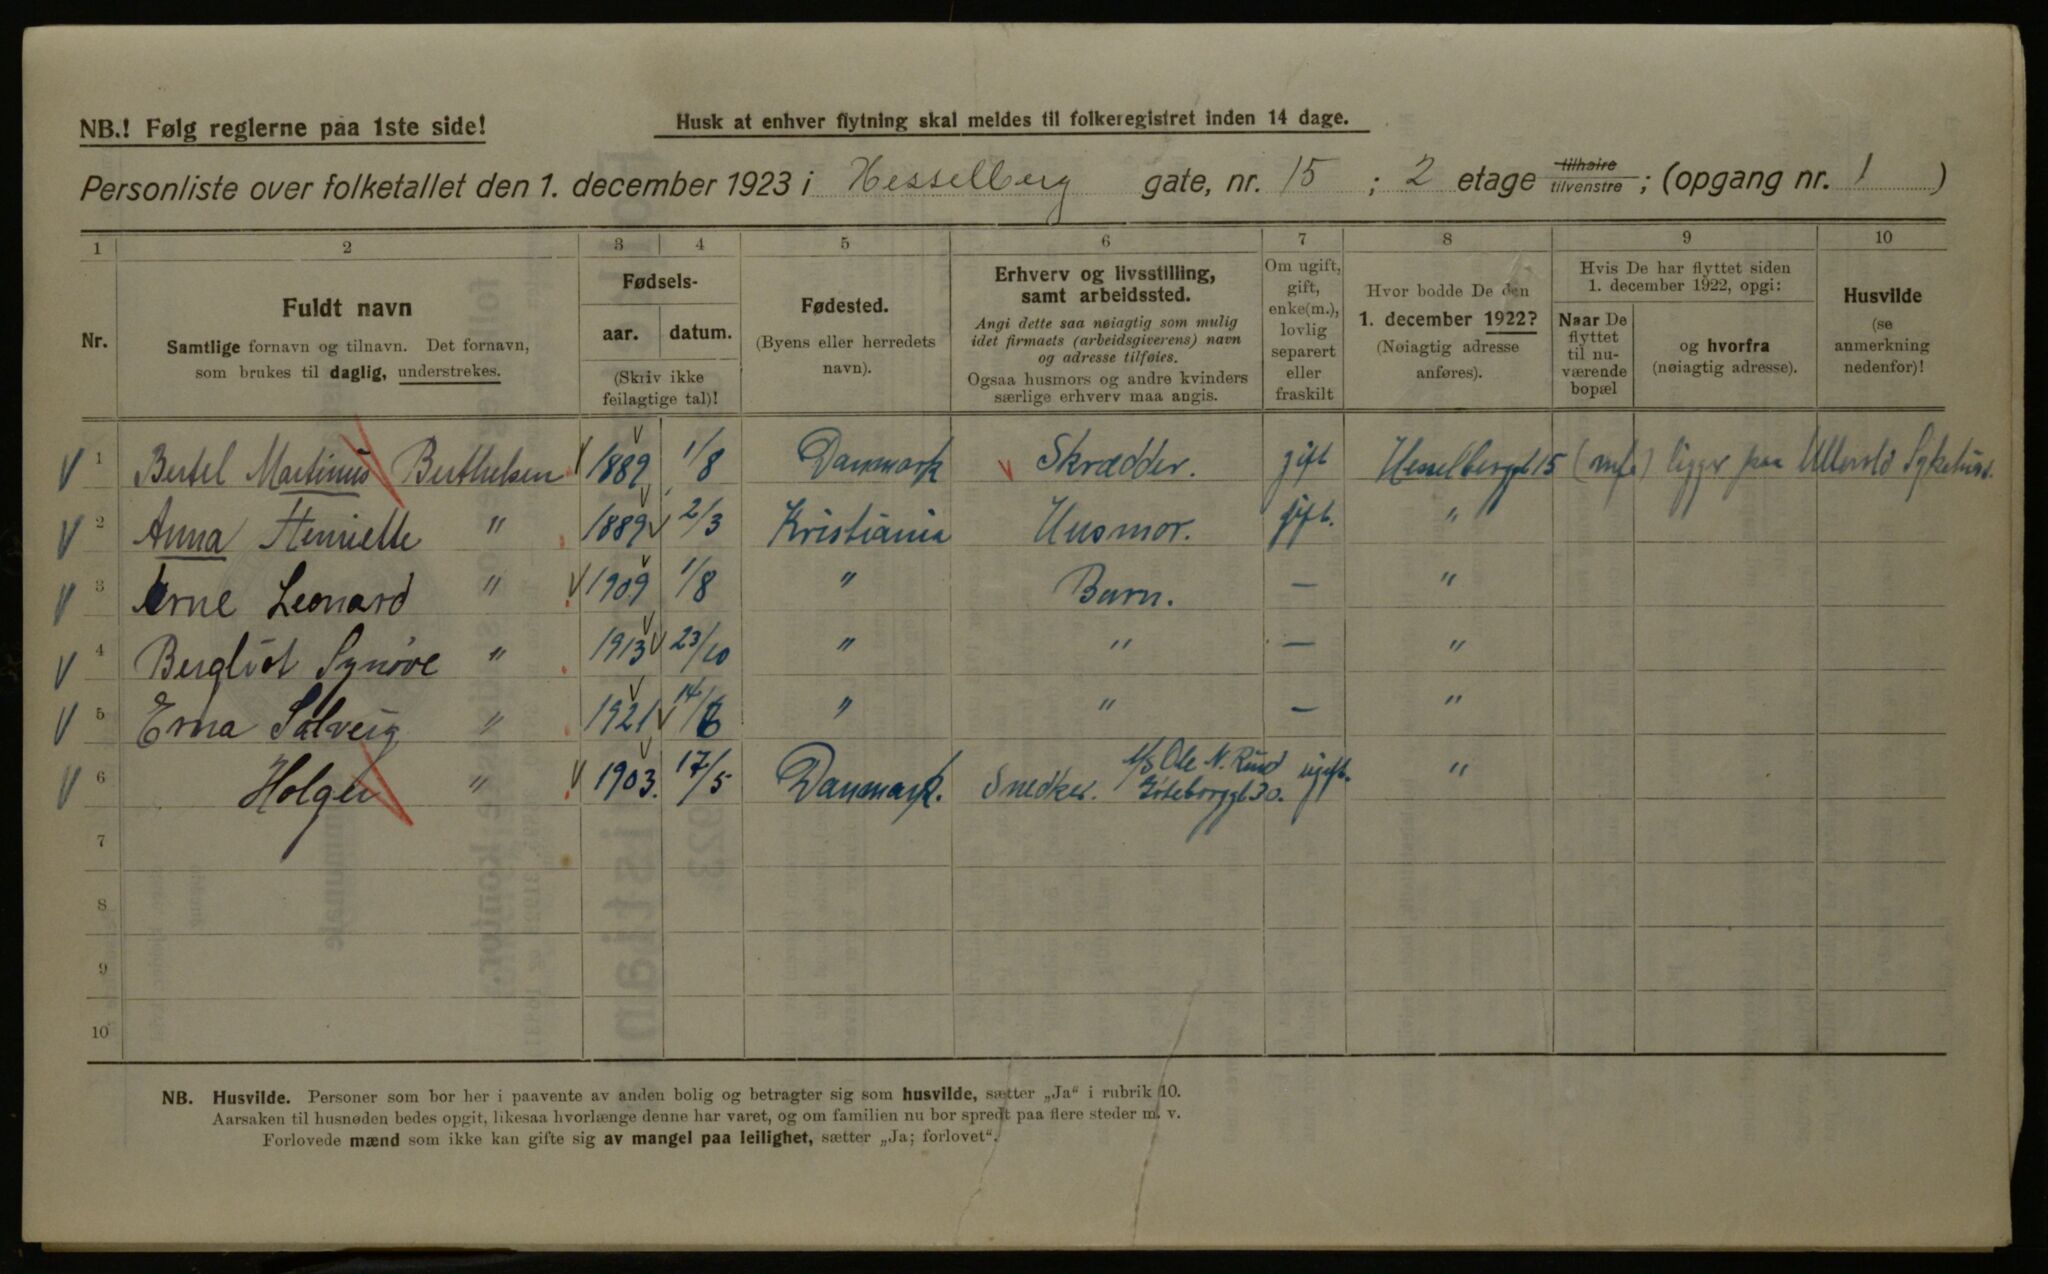 NB.! Følg reglerne paa 1ste side!
Husk at enhver flytning skal meldes til folkeregistret inden 14 dage.
Personliste over folketallet den 1. december 1923 i Hesselberg gate, nr. 15 ; 2 etage tilhøire tilvenstre ; (opgang nr. 1 )
1 2 3 4 5 6 7 8 9 10
Nr.
Fuldt navn
Samtlige fornavn og tilnavn. Det fornavn,
som brukes til daglig, understrekes.
Fødsels-
aar. datum.
(Skriv ikke
feilagtige tal)!
Fødested.
(Byens eller herredets
navn).
Erhverv og livsstilling,
samt arbeidssted.
Angi dette saa nøiagtig som mulig
idet firmaets (arbeidsgiverens) navn
og adresse tilføies.
Ogsaa husmors og andre kvinders
særlige erhverv maa angis.
Om ugift,
gift,
enke(m.),
lovlig
separert
eller
fraskilt
Hvor bodde De den
1. december 1922?
(Nøiagtig adresse
anføres).
Hvis De har flyttet siden
1. december 1922, opgi:
Naar De
flyttet
til nu-
værende
bopæl
og hvorfra
(nøiagtig adresse).
Husvilde
(se
anmerkning
nedenfor)!
1 Bertel Martinus Berthelsen 1889 1/8 Danmark Skrædder. gift Hesselberggt 15 ligger paa Ullevold Sykehus.
2 Anna Henriette " 1889 2/3 Kristiania Husmor. gift. "
3 Arne Leonard " 1909 1/8 " Barn. — "
4 Bergliot Synøve " 1913 23/10 " " — "
5 Erna Solveig " 1921 14/6 " " — "
6 Holger " 1903. 17/5 Danmark. Snedker. A/S Ole N. Rund Gøteborggt 30. ugift. "
7
8
9
10
NB. Husvilde. Personer som bor her i paavente av anden bolig og betragter sig som husvilde, sætter „Ja“ i rubrik 10.
Aarsaken til husnøden bedes opgit, likesaa hvorlænge denne har varet, og om familien nu bor spredt paa flere steder m. v.
Forlovede mænd som ikke kan gifte sig av mangel paa leilighet, sætter „Ja; forlovet“.